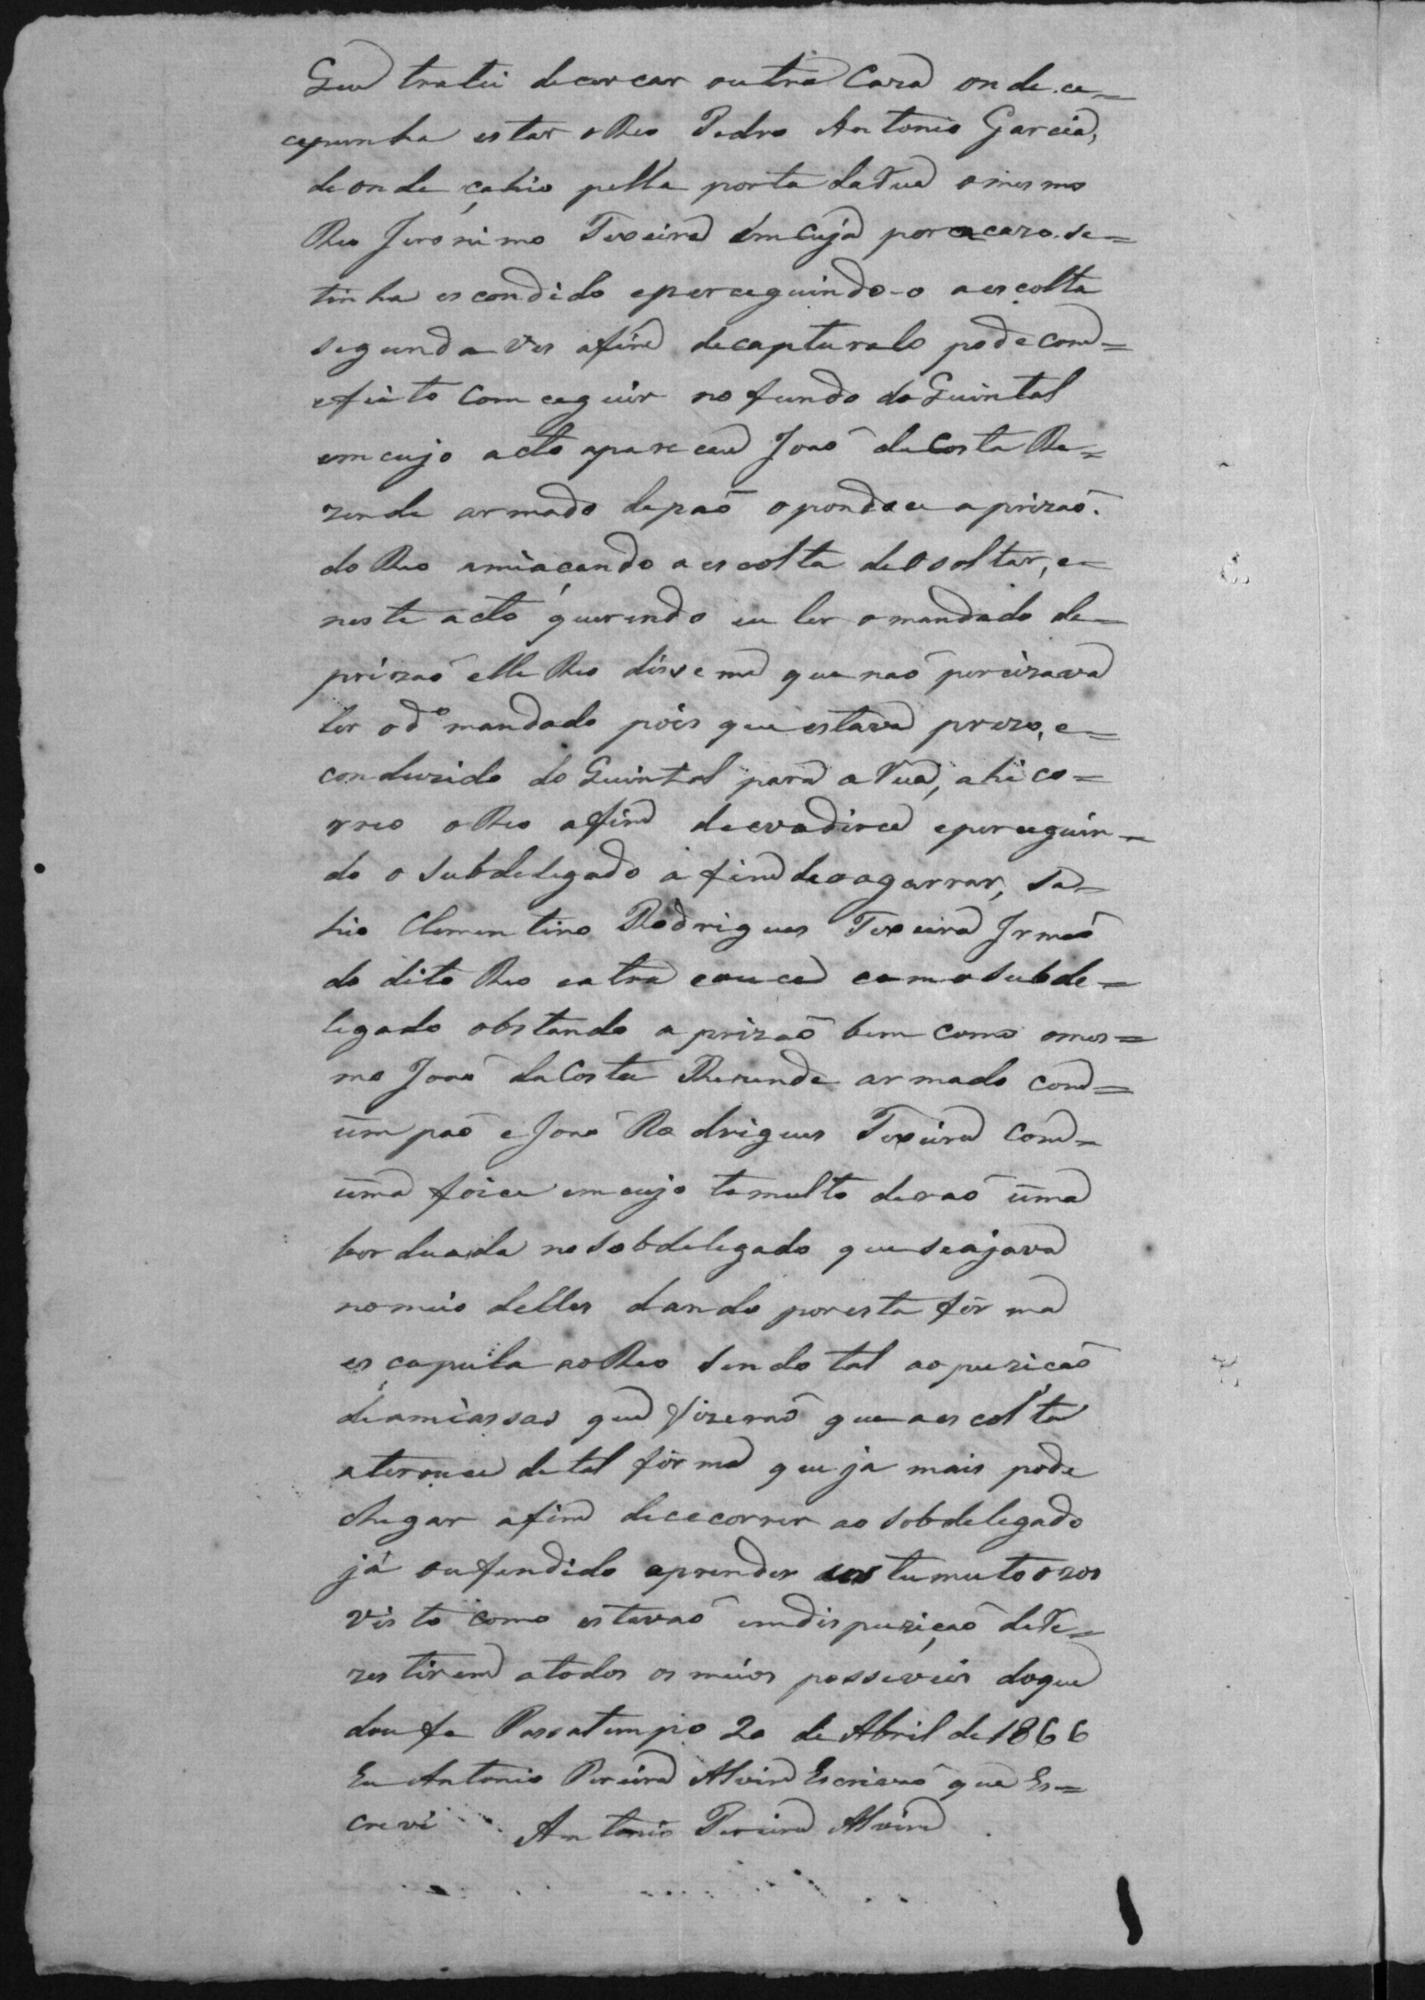 Que tratei decercar outra Caza onde.ce-
cepunha estar o Reo Pedro Antonio Garcia,
deonde sahio pella porta daRua omesmo
Reo Jeronimo Texeira emcuja poracazo.se=
tinha escondido eperceguindo-o aescolta
segunda ves afim decapturalo pode com=
efeito comceguir no fundo do Quintal
emcujo acto apareceu Joaõ daCosta Re=
zende armado depaõ opondoce aprizaõ.
do Reo amiaçando aescolta deosoltar, e-
neste acto querendo eu ler omandado de-
prizaõ elle Reo disseme que naõ percizava
ler odº mandado pois que estava prezo, e=
conduzido do Quintal para aRua, ahi co=
rreo oReo afim decvadirce eperceguin=
do o Subdelegado afimdeoagarrar, Sa=
hio Clementino Rodrigues Texeira Irmaõ
do dito Reo eatracouce comoSubde=
legado obstando aprizaõ bem como omes=
mo Joaõ daCosta Rezende armado com=
um paõ e Joaõ Rodrigues Texeira com=
uma foice emcujo tomulto deraõ uma
borduada noSobdelegado que seajava
nomeio delles dando poresta fórma
escapula aoReo sendo tal aopuziçaõ
deamiassas que fizeraõ que aescolta
aterouce detal fórma que ja mais pode
chegar afim dececorrer ao Sobdelegado
já oufendido aprender os tumutozos
visto como estavaõ emdispuziçaõ deRe=
zestirem atodos os meios possiveis doque
doufe Passatempo 20 de Abril de 1866
Eu Antonio Pereira Alvim Escrivaõ que Es=
crevi Antonio Pereira Alvim